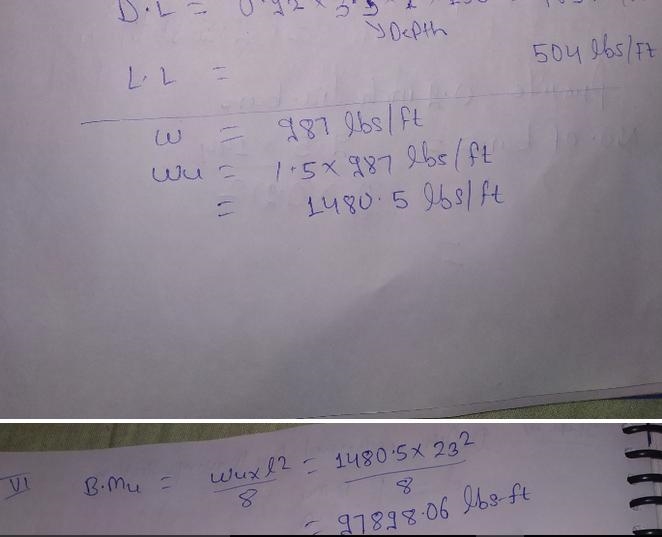 D.L = 0.92 × 3.5 ×
Depth
504 lbs/ft
L.L =
w = 987 lbs/ft
wu = 1.5 × 987 lbs/ft
= 1480.5 lbs/ft
VI B.Mu = wu×l²/8 = 1480.5 × 23²/8
= 97898.06 lbs-ft